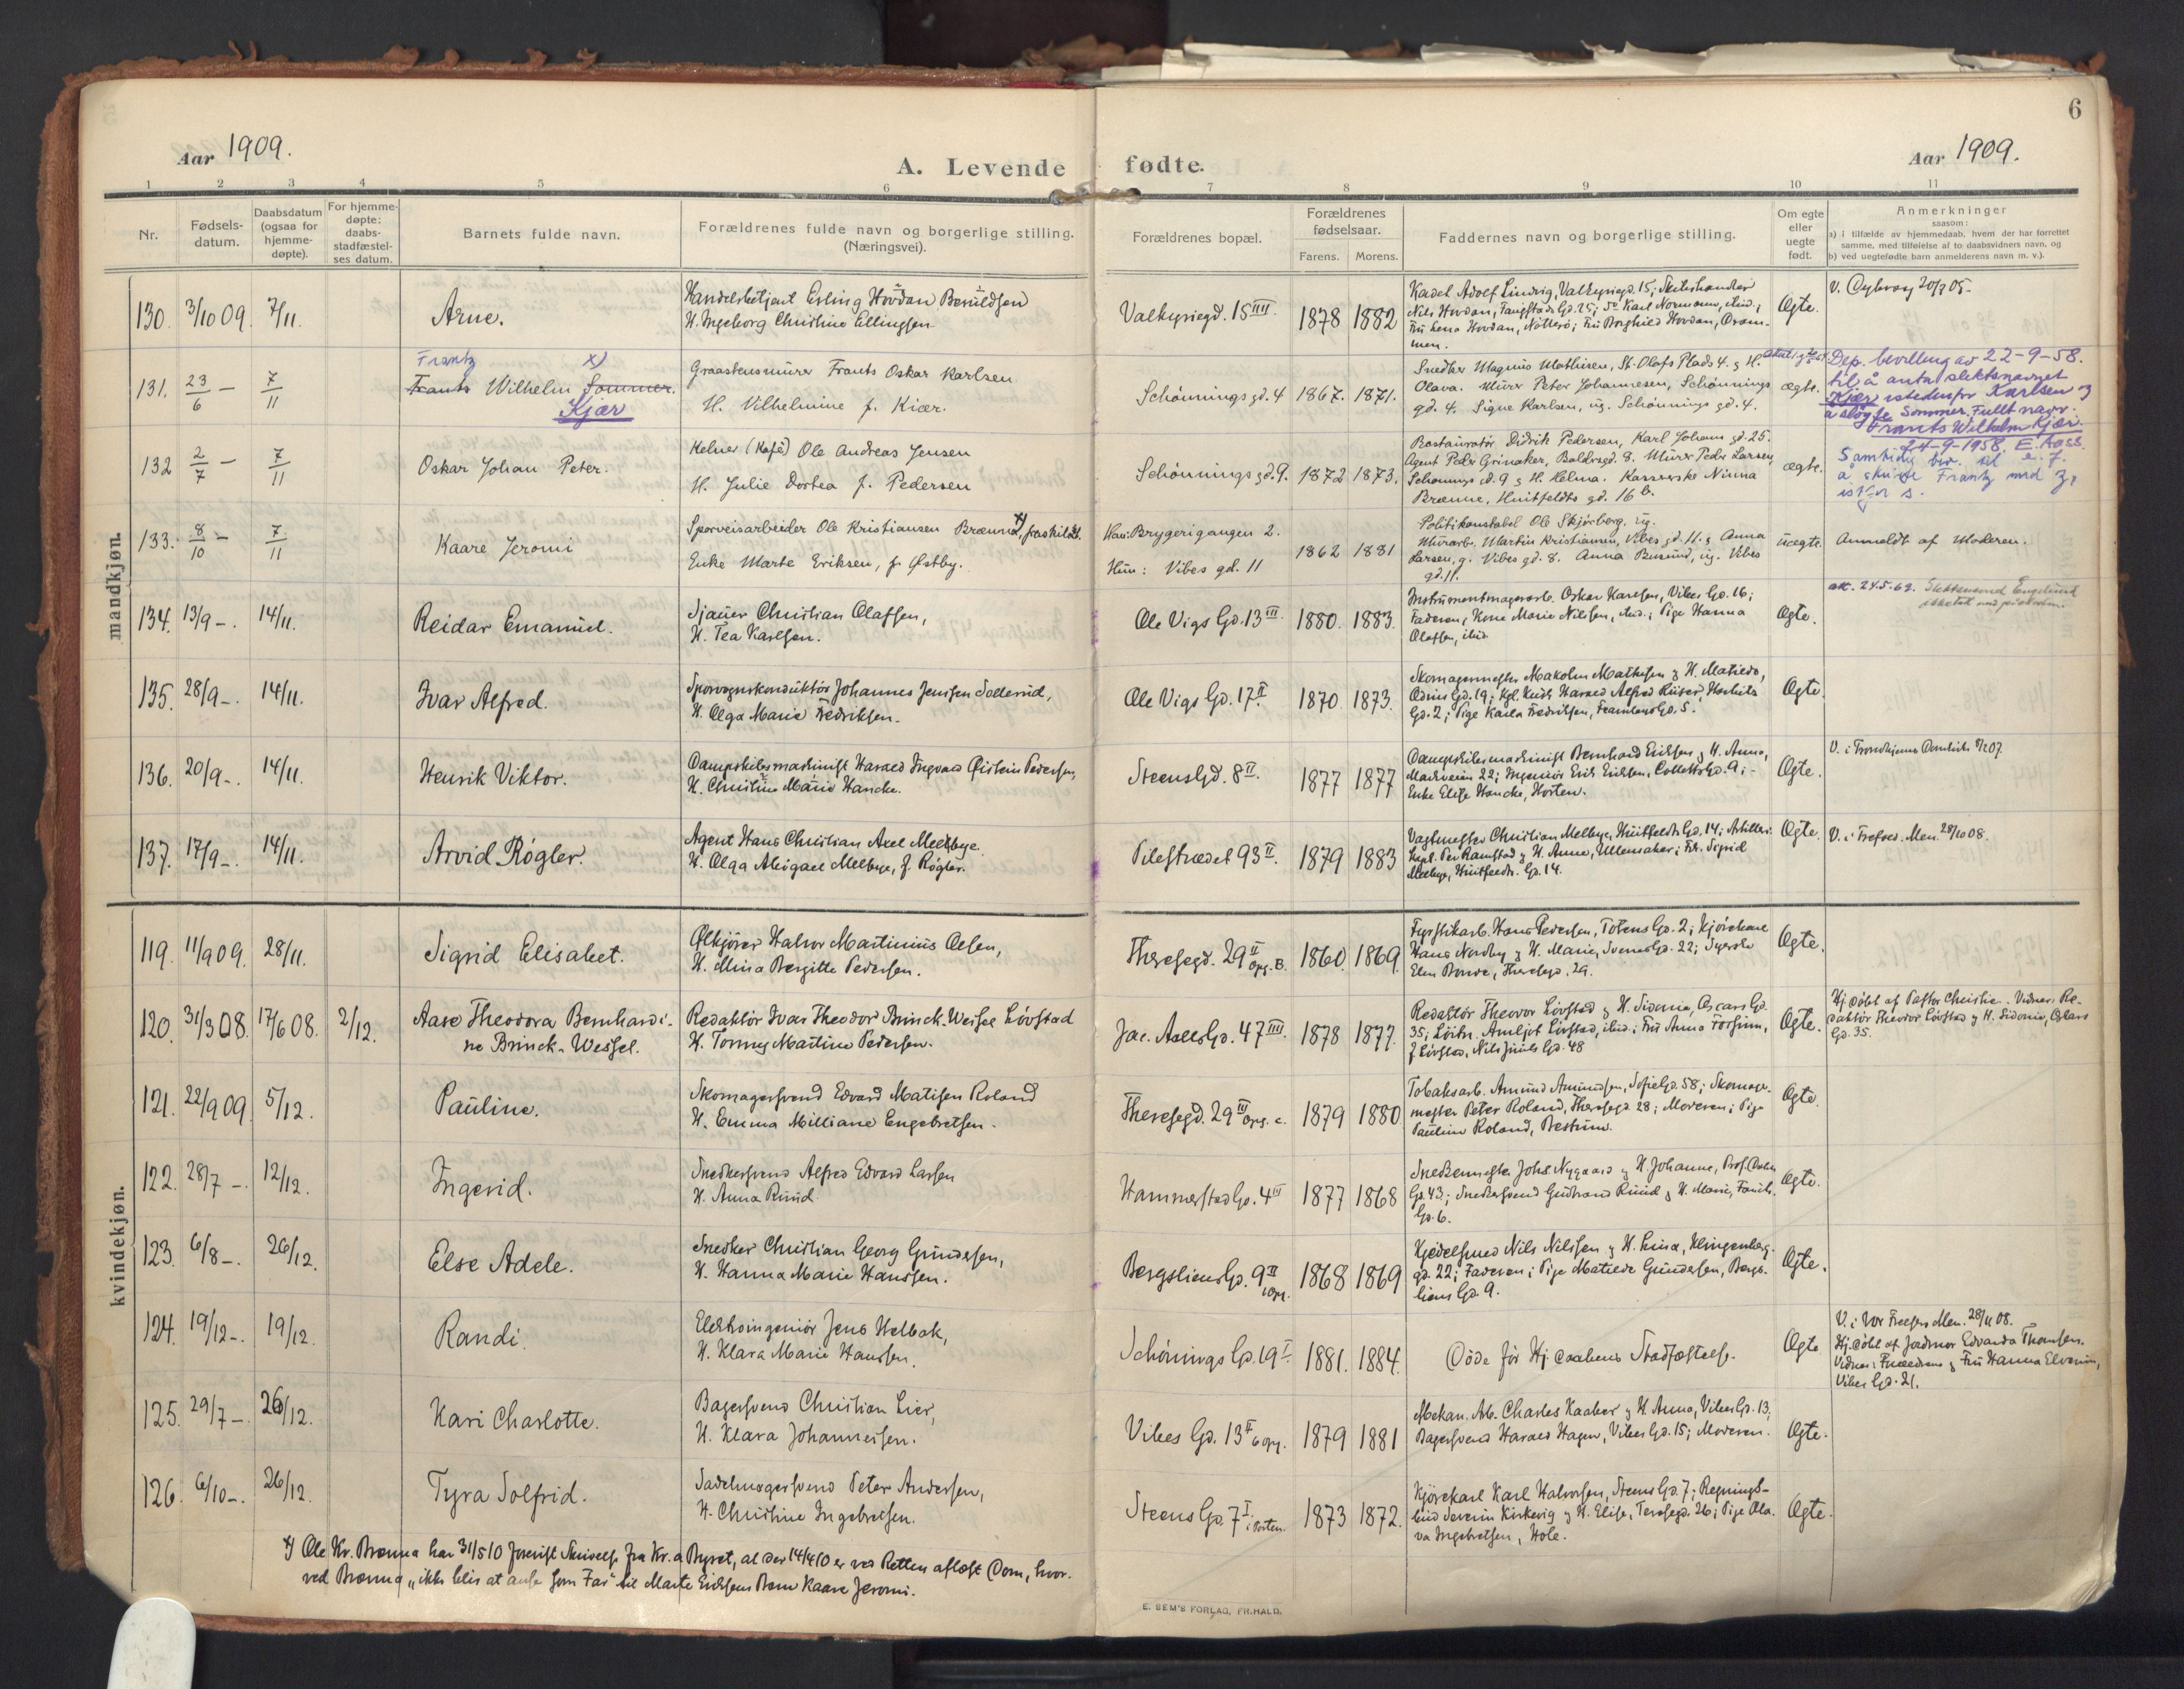 6
Aar 1909.
A. Levende fødte.
Aar 1909.
1 2 3 4 5 6 7 8 9 10 11
Nr.
Fødsels-
datum.
Daabsdatum
(ogsaa for
hjemme-
døpte).
For hjemme-
døpte:
daabs-
stadfæstel-
ses datum.
Barnets fulde navn.
Forældrenes fulde navn og borgerlige stilling.
(Næringsvei).
Forældrenes bopæl.
Forældrenes
fødselsaar.
Farens. Morens.
Faddernes navn og borgerlige stilling.
Om egte
eller
uegte
født.
Anmerkninger
saasom:
a) i tilfælde av hjemmedaab, hvem der har forrettet
samme, med tilføielse af to daabsvidners navn, og
b) ved uegtefødte barn anmelderens navn m. v.).
mandkjøn.
130. 3/10 09. 7/11. Arne.
Handelsbetjent Erling Hovdan Beruldsen
H. Ingeborg Christine Ellingsen
Valkyriegd. 15 IIII 1878 1882
Kadet Adolf Lindvig, Valkyriegd. 15;
Nils Hovdan, Karl Normann, ibid.;
Fru Lena Hovdan, Nötterö; Fru Borghild Hovdan, Dram-
men.
Ægte.
131. 23/6 – 7/11
Frantz x)
Frants Wilhelm Sommer.
Kjær
Graastensmurer Frants Oskar Karlsen
H. Vilhelmine f. Kiær.
Schønnings gd. 4 1867. 1871.
Snedker Magnus Mathisen, St. Olafs Plads 4. & H.
Olava. Murer Peter Johannesen, Schønnings
gd. 4. Signe Karlsen, ug. Schønnings gd. 4.
ægte.
Dep. bevilling av 22-9-58.
til å anta slektsnavnet
Kjær istedenfor Karlsen og
å sløyfe Sommer. Fullt navn:
Frants Wilhelm Kjær.
24-9-1958. E. Aass.
Samtidig bev. til
å skrive Frantz med z,
istf. s.
132 2/7 – 7/11 Oskar Johan Peter.
Kelner (Kafé) Ole Andreas Jensen
H. Julie Dortea f. Pedersen
Schønnings gd. 9. 1872 1873.
Restauratør Didrik Pedersen, Karl Johans gd. 25.
Agent Peder Grinaker, Baldersgd. 8. Murer Peder Larsen,
Schønnings gd. 9 & H. Helma. Kassererske Ninna
Brænne, Huitfeldts gd. 16 b.
ægte.
133. 8/10 – 7/11 Kaare Jeromi
Sporveisarbeider Ole Kristiansen Brænna x), fraskildt.
Enke Marte Eriksen, f. Østby.
Han: Brygerigangen 2.
Hun: Vibes gd. 11
1862 1881
Politikonstabel Ole Skjørberg, ug.
Murarb. Martin Kristiansen, Vibes gd. 11. & Anna
Larsen, g. Vibes gd. 8. Anna Busund, ug. Vibes
gd. 11.
uægte. Anmeldt af Moderen.
134. 13/9 –. 14/11. Reidar Emanuel.
Sjauer Christian Olafsen,
H. Tea Karlsen.
Ole Vigs Gd. 13 III 1880. 1883.
Instrumentmagerarb. Oskar Karlsen, Vibes Gd. 16;
Faderen, Kone Marie Nilsen, ibid.; Pige Hanna
Olafsen, ibid.
Ægte.
att. 24.5.69. Slektsnavnet Englund
135. 28/9 –. 14/11. Ivar Alfred.
Sporvognskonduktör Johannes Jenssen Sollerud,
H. Olga Marie Fredriksen.
Ole Vigs Gd. 17 II. 1870. 1873.
Skomagermester Malkolm Mathisen & H. Matilde,
Odins Gd. 19; Kgl. Kudsk Harald Alfred Riiser,
Gd. 2; Pige Karla Fredriksen, Framnes Gd. 5.
Ægte.
136. 20/9 –. 14/11. Henrik Viktor.
Dampskibsmaskinist Harald Ingvald Øistein Pedersen,
H. Christine Marie Hancke.
Steens Gd. 8 II. 1877 1877
Dampskibsmaskinist Bernhard Eriksen & H. Anna,
Markveien 22; Ingeniör Erik Eriksen, Colletts Gd. 9; –
Enke Elise Hancke, Horten.
Ægte.
V. i Trondhjems Domkirke 07
137. 17/9 –. 14/11. Arvid Rögler.
Agent Hans Christian Axel Melbye.
H. Olga Abigael Melbye, f. Rögler.
Pilestrædet 93 II. 1879 1883
Vagtmester Christian Melbye, Huitfeldts Gd. 14; Artilleri-
kapt. Per Ramstad & H. Anna, Ullensaker; Frk. Sigrid
Melbye, Huitfeldts Gd. 14.
Ægte. V. i Trefold. Men. 28/10 08.
kvindekjøn.
119. 11/9 09. 28/11. Sigrid Elisabet.
Ølkjörer Halvor Martinius Olsen,
H. Mina Bergitte Pedersen.
Theresegd. 29 II Opg. B. 1860. 1869.
Fyrstikarb. Hans Pedersen, Totens Gd. 2; Kjörekarl
Hans Nordby & H. Marie, Svens Gd. 22; Syerske
Elen Bonde, Theresegd. 29.
Ægte.
120. 31/3 08. 17/6 08. 2/12.
Aase Theodora Bernhardi-
ne Brinck-Wessel.
Redaktör Ivar Theodor Brinck-Wessel Lövstad
H. Tommy Martine Pedersen.
Jac. Aalls Gd. 47 IIII. 1878 1877.
Redaktör Theodor Lövstad & H. Sidonia, Oscars Gd.
35; Löitn. Arnljot Lövstad, ibid.; Fru Anna Forfinn,
f. Lövstad, Nils Juels Gd. 48
Ægte.
Hj. döbt af Pastor Christie. Vidner: Re-
daktör Theodor Lövstad & H. Sidonia, Oskars
Gd. 35.
121. 22/9 09 5/12. Pauline.
Skomagersvend Edvard Matisen Roland
H. Emma Milliane Engebretsen.
Theresegd. 29 III Opg. c. 1879 1880
Tobaksarb. Amund Amundsen, Sofies Gd. 58; Skomager-
mester Peter Roland, Theresegd. 28; Moderen; Pige
Pauline Roland, Bestum.
Ægte.
122. 28/7 –. 12/12. Ingerid.
Snedkersvend Alfred Edvard Larsen
H. Anna Ruud
Hammerstad Gd. 4 III 1877 1868
Snedkermester Johs. Nygaard & H. Johanne, Prof. Dahls
Gd. 43; Snedkersvend Gudbrand Ruud & H. Marie,
Gd. 6.
Ægte.
123. 6/8 –. 26/12. Else Adele.
Snedker Christian Georg Gundersen,
H. Hanna Marie Hanssen.
Bergsliens Gd. 9 II 1868 1869
Kjedelsmed Nils Nilssen & H. Lina, Klingenberg-
gd. 22; Faderen; Pige Matilde Gundersen, Bergs-
liens Gd. 9.
Ægte.
124. 19/12 –. 19/12. Randi.
Elektroingeniör Jens Helbak,
H. Klara Marie Hanssen.
Schönings Gd. 19 I. 1881. 1884.
Döde för Hj. daabens Stadfæstelse.
Ægte
V. i Vor Frelsers Men. 28/11 08.
Hj. döbt af Jordmor Edvarda Thomsen.
Vidner: Forældrene & Fru Hanna Elverum,
Vibes Gd. 21.
125. 29/7 –. 26/12. Kari Charlotte.
Bagersvend Christian Lier,
H. Klara Johannessen.
Vibes Gd. 13 II 1879 1881
Mekan. Arb. Charles Kaaber & H. Anna, Vibes Gd. 13;
Bagersvend Harald Hagen, Vibes Gd. 15; Moderen.
Ægte.
126. 6/10 –. 26/12. Tyra Solfrid.
Sadelmagersvend Peter Andersen,
H. Christine Ingebretsen.
Steens Gd. 7 I. i Porten. 1873 1872.
Kjörekarl Karl Halvorsen, Steens Gd. 7; Regnings-
bud Severin Kirkevig & H. Elise, Teresegd. 26; Pige Ola-
va Ingebretsen, Hole.
Ægte.
x) Ole Kr. Brænna har 31/5 10 forevist Skrivelse fra Kr.a Byret, at der 14/4 10 er ved Retten afsagt Dom, hvor-
ved Brænna „ikke blir at anse som Far" til Marte Eriksens Barn Kaare Jeromi.
E. SEM'S FORLAG, FR.HALD.